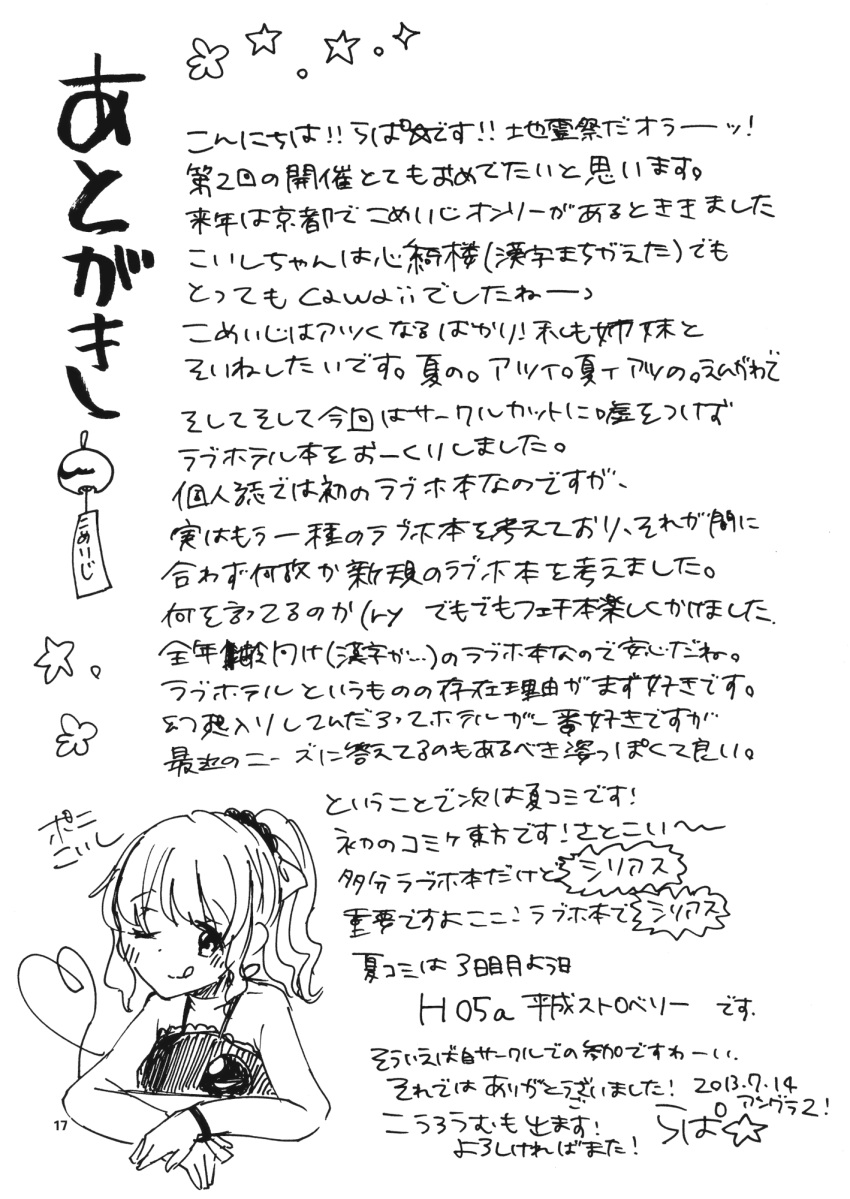 あとがき
こめいじ
こんにちは!!らぱ☆です!!地霊祭だオラーーッ!
第2回の開催とてもおめでたいと思います。
来年は京都でこめいじオンリーがあるとききました
こいしちゃんは心綺楼(漢字まちがえた)でも
とってもcawaiiでしたねーっ
こめいじはアツくなるばかり!私も姉妹と
そいねしたいです。夏の。アツイ。夏イアツの。えんがわで
そしてそして今回はサークルカットに嘘をつけず
ラブホテル本をおーくりしました。
個人誌では初のラブホ本なのですが、
実はもう一種のラブホ本を考えており、それが間に
合わず何故か新規のラブホ本を考えました。
何を言ってるのか(ry でもでもフェチ本楽しくかけました.
全年齢向け(漢字が…)のラブホ本なので安心だね。
ラブホテルというものの存在理由がまず好きです。
幻想入りしてんだろってホテルが一番好きですが
最近のニーズに答えてるのもあるべき姿っぽくて良い。
ということで次は夏コミです!
初のコミケ東方です!さとこい〜〜
多分ラブホ本だけどシリアス
重要ですよここ!ラブホ本でシリアス
夏コミは3日目月よう日
H05a 平成ストロベリー です.
そういえば自サークルでの参加ですわーい.
それではありがとうございました! 2013.7.14
こうろうむも出ます! アングラス!
よろしければまた! らぱ☆
ポニこいし
17